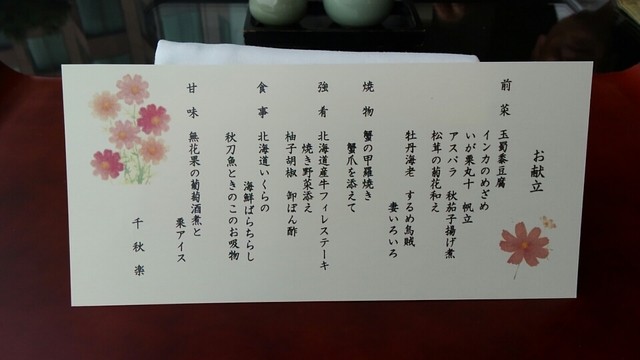 お献立
前菜 玉蜀黍豆腐
インカのめざめ
いが栗丸十 帆立
アスパラ 秋茄子揚げ煮
松茸の菊花和え
牡丹海老 するめ烏賊
妻いろいろ
焼物 蟹の甲羅焼き
蟹爪を添えて
強肴 北海道産牛フィレステーキ
焼き野菜添え
柚子胡椒 卸ぽん酢
食事 北海道いくらの
海鮮ばらちらし
秋刀魚ときのこのお吸物
甘味 無花果の葡萄酒煮と
栗アイス
千秋楽